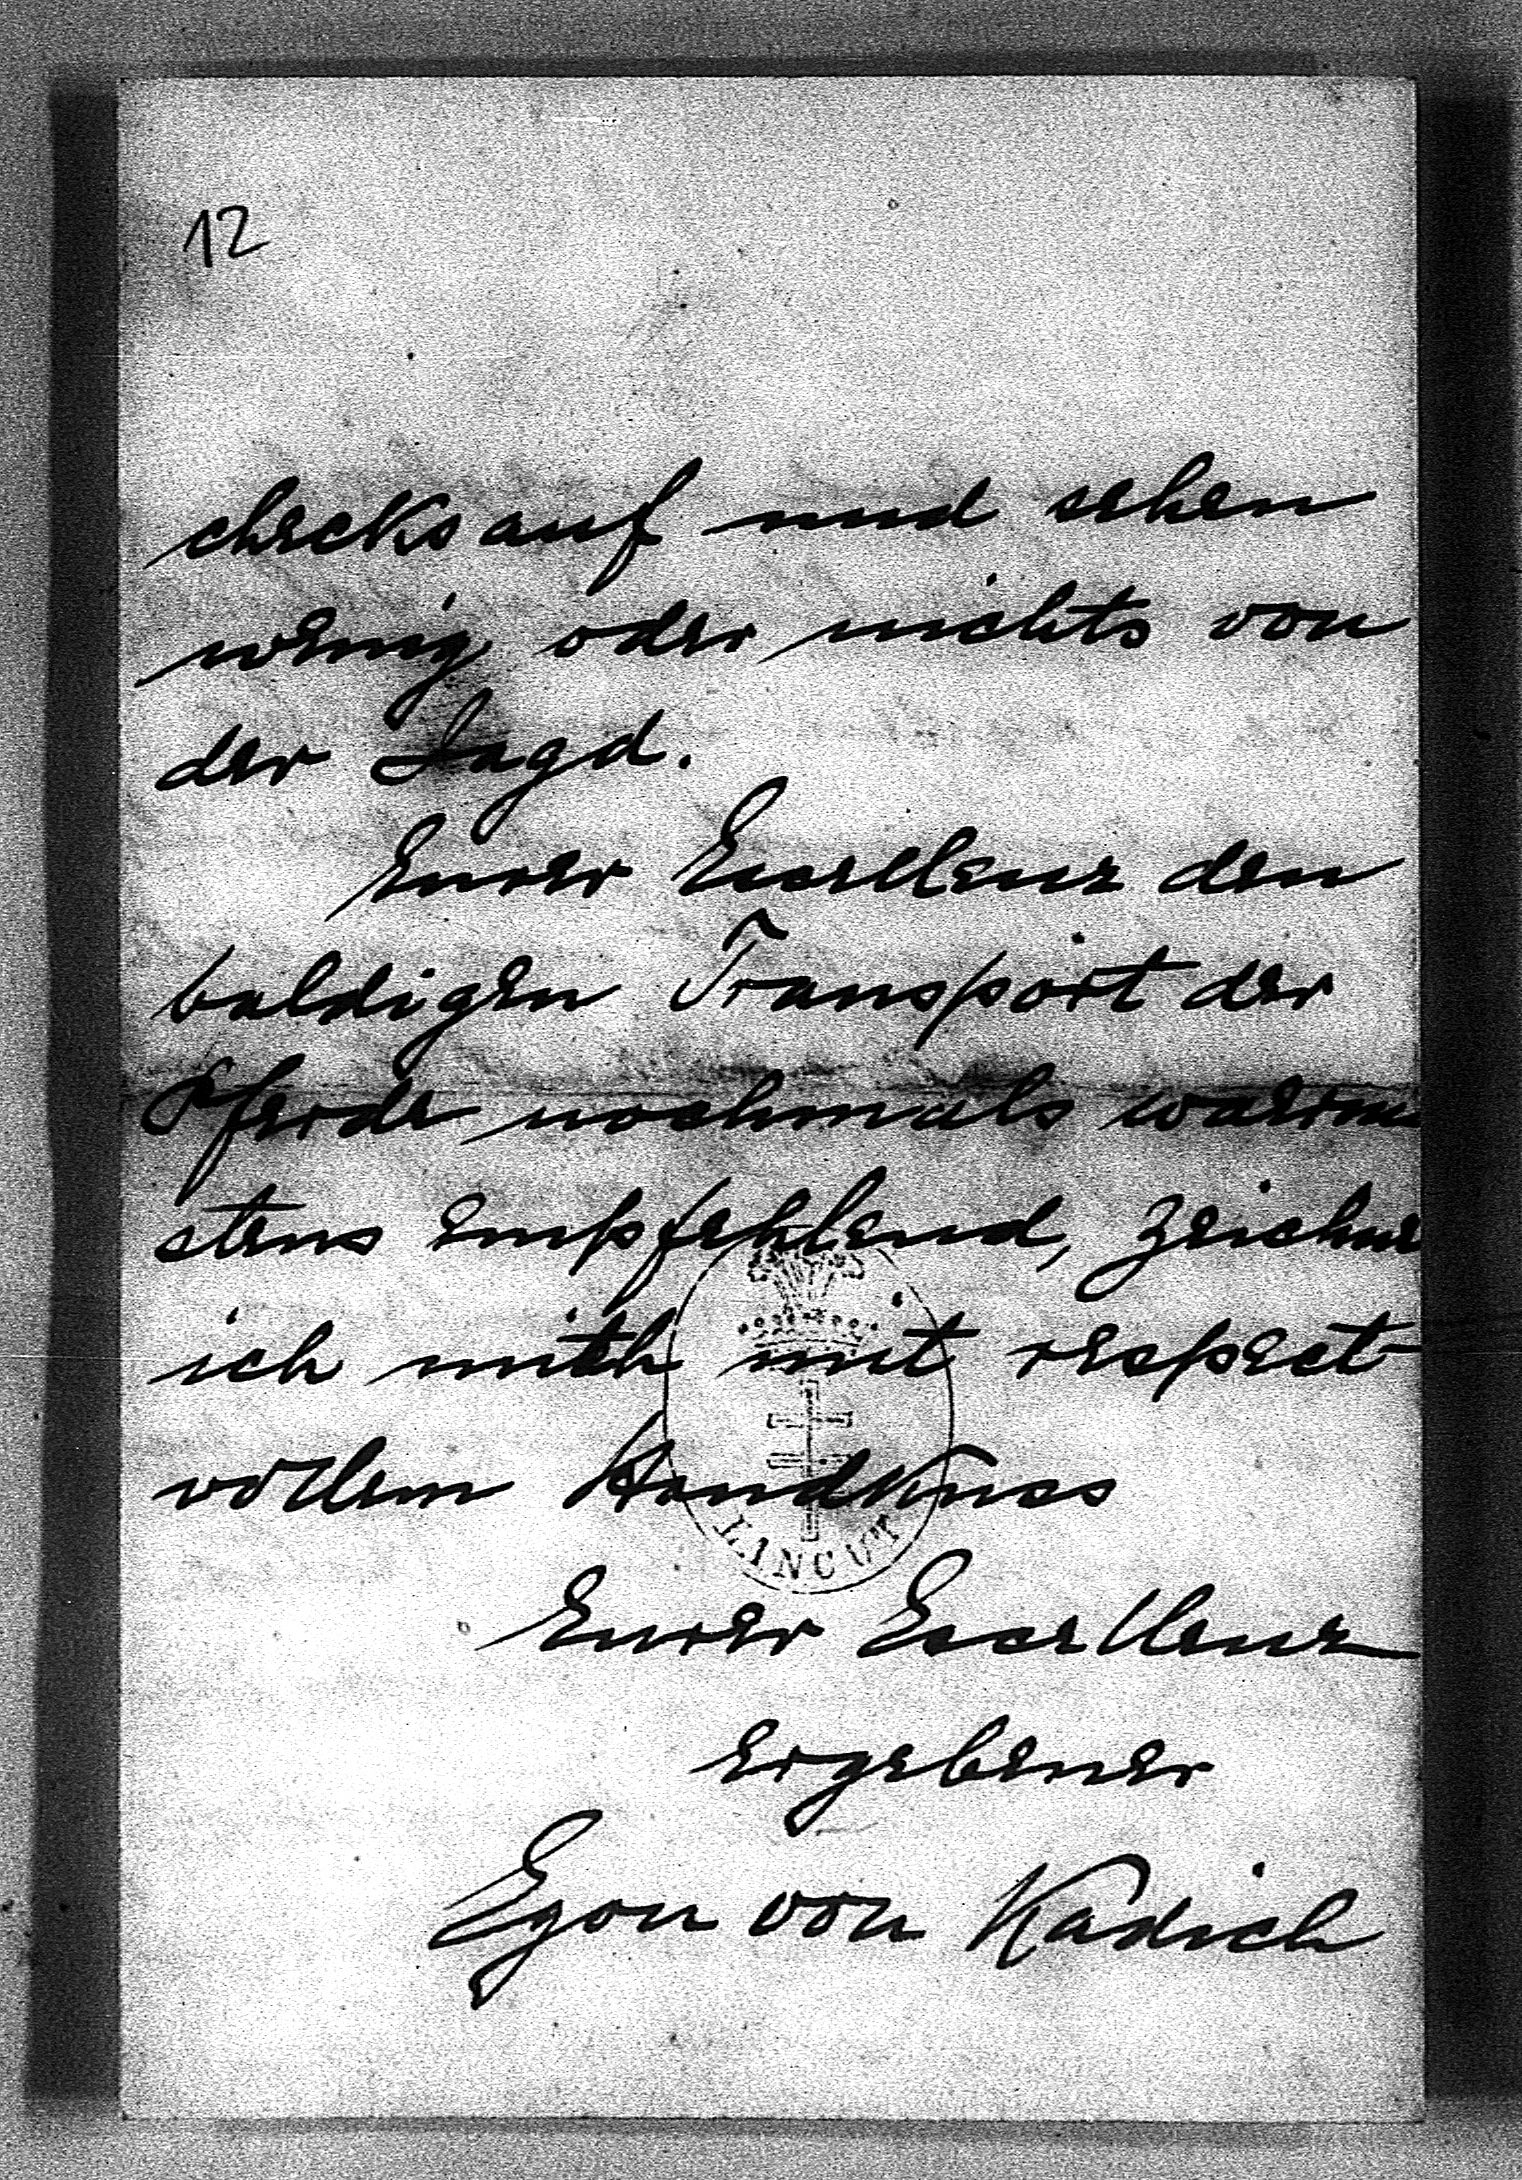 12
checks auf und sehen
wenig oder nichts von
der Jagd.
Eurer Excellenz den
baldigen Transport der
Pferde nochmals waerm
stens empfehlend, zeichne
ich mich mit respect-
vollem Handkuss
ŁAŃCUT
Eurer Excellenz
ergebener
Egon von Kadich